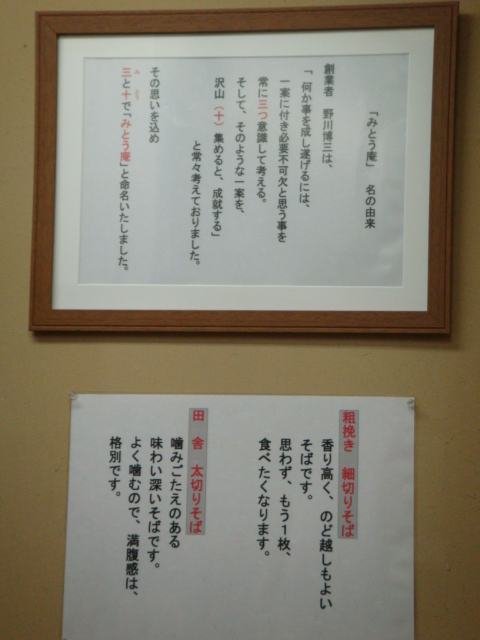 「みとう庵」 名の由来
創業者 野川博三は、
「何か事を成し遂げるには、
一案に付き必要不可欠と思う事を
常に三つ意識して考える。
そして、そのような一案を、
沢山(十)集めると、成就する」
と常々考えておりました。
その思いを込め
三と十で「みとう庵」と命名いたしました。
粗挽き 細切りそば
香り高く、のど越しもよい
そばです。
思わず、もう1枚、
食べたくなります。
田舎 太切りそば
噛みごたえのある
味わい深いそばです。
よく噛むので、満腹感は、
格別です。